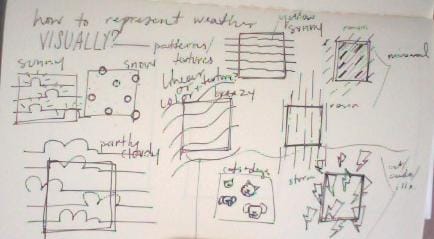 how to represent weather
VISUALLY?
patterns/
textures
yellow
sunny
sunny
snow
linear
or
color +
texture
breezy
rain
partly
cloudy
cats + dogs
storm